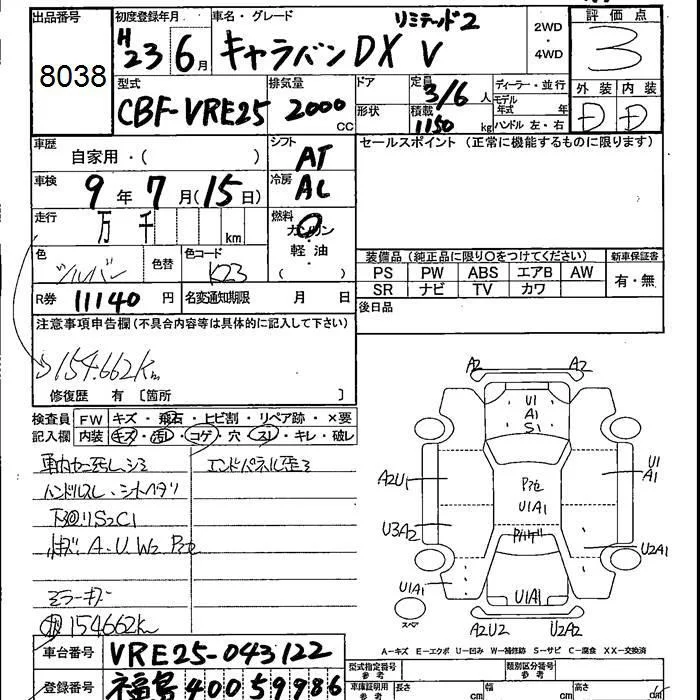 出品番号 初度登録年月 車名・グレード リミテード2 2WD・4WD 評価点
8038 H23 6月 キャラバンDX V 3
型式 排気量 ドア 定員 3/6人 ディーラー・並行 外装 内装
CBF-VRE25 2000cc 形状 積載 1150kg モデル年式 年 ハンドル 左・右 D D
車歴 シフト セールスポイント (正常に機能するものに限ります)
自家用・( ) AT
車検 9年7月(15日) 冷房 AC
走行 万 千 km 燃料 ガソリン
軽油
( )
色 シルバー 色替 色コード K23
装備品 (純正品に限り〇をつけてください) 新車保証書
PS PW ABS エアB AW 有・無
SR ナビ TV カワ
R券 11140円 名変通知期限 月 日 後日品
注意事項申告欄(不具合内容等は具体的に記入して下さい)
154.662km
修復歴 有 〔箇所 〕
検査員 FW キズ・飛石・ヒビ割・リペア跡・×要
記入欄 内装 キズ・汚レ・コゲ・穴・スレ・キレ・破レ
エンドパネル歪ミ
ハンドルスレ・シートヘタリ
下回リS2C1
A.U.W2
ミラーキズ
154662km
A2 A2
U1
A1
S1
A2U1 U1
A1
U1A1
U3A2 U2A1
U1A1 U1A1
スペア
A2U2 U2A2
A-キズ E-エクボ U-凹み W-補修跡 S-サビ C-腐食 XX-交換済
車台番号 VRE25-043122 型式指定番号 参考 類別区分番号 参考
登録番号 福島400 59986 車庫証明用 参考 長さ cm 幅 cm 高さ cm